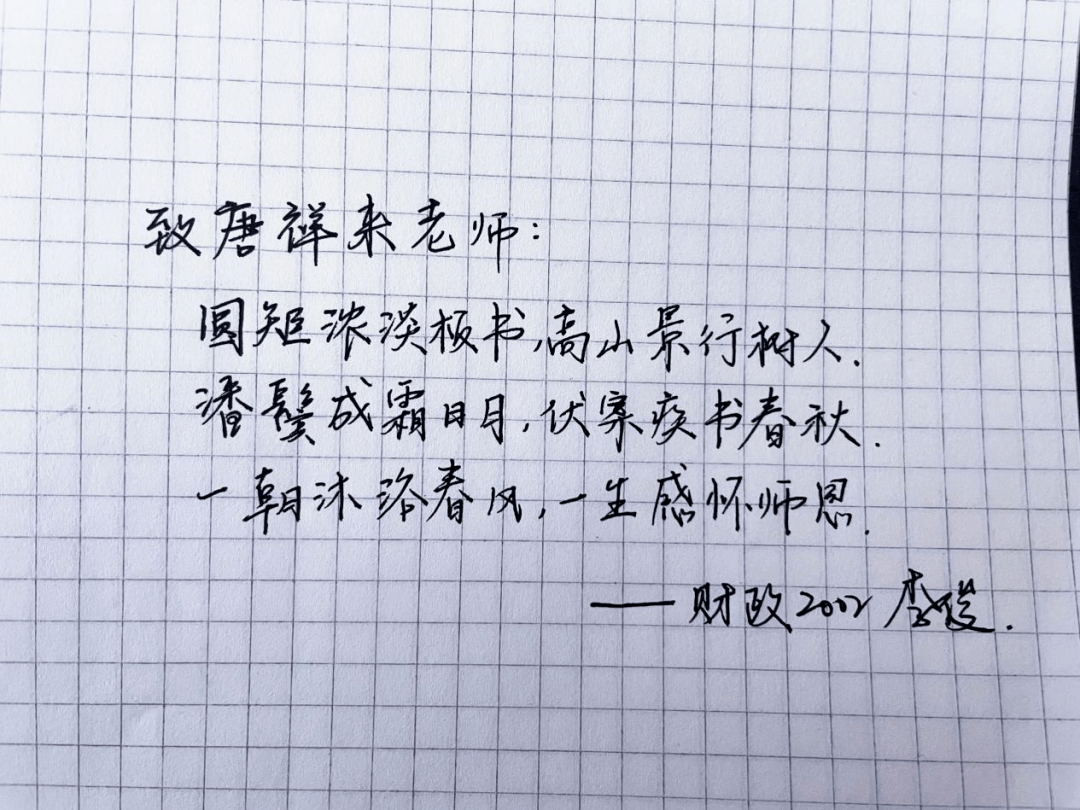 致唐祥来老师:
圆矩浓淡板书,高山景行树人.
潘鬓成霜日月,伏案疾书春秋.
一朝沐浴春风,一生感怀师恩.
——财政2002 李俊.